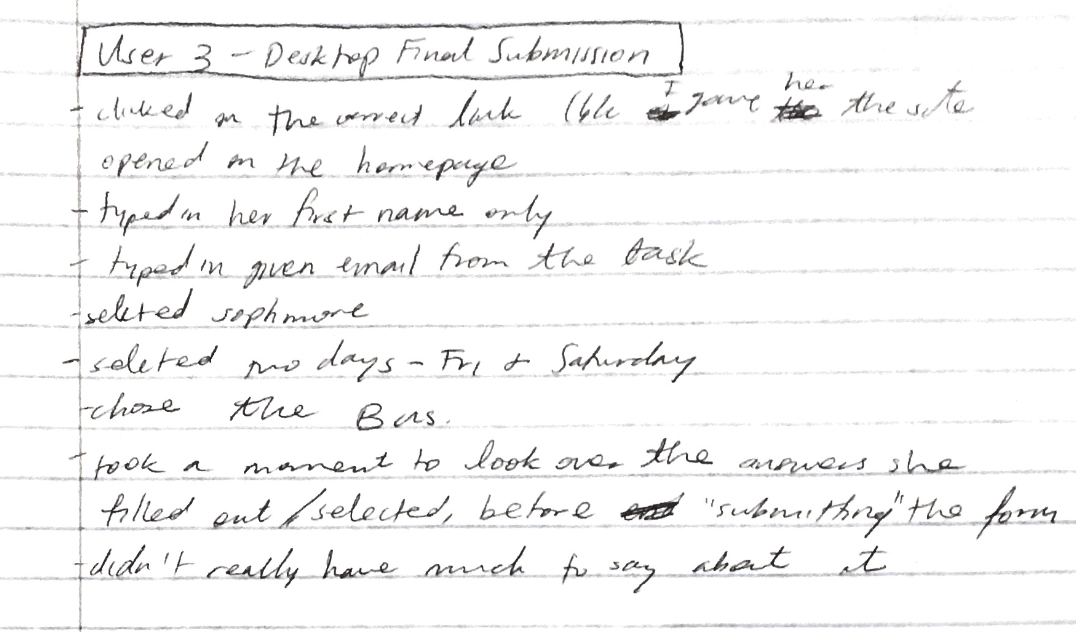 User 3 - Desktop Final Submission
- clicked on the correct link (b/c I gave her the site
opened on the homepage
- typed in her first name only
- typed in given email from the task
- seleted sophmore
- seleted two days - Fri & Saturday
- chose the Bus.
- took a moment to look over the answers she
filled out / selected, before "submitting" the form
- didn't really have much to say about it